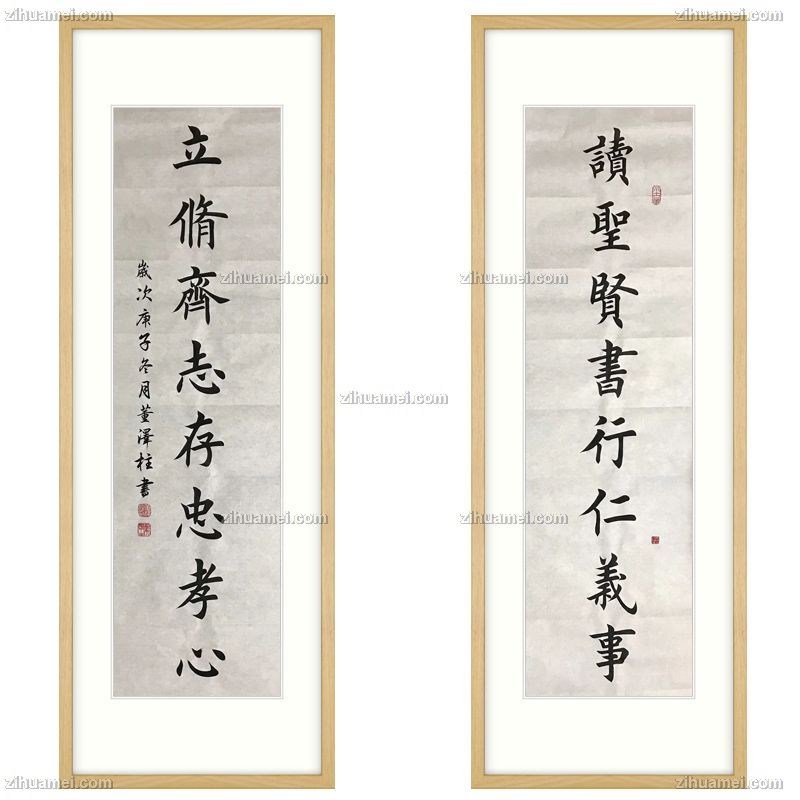 讀聖賢書行仁義事
立脩齊志存忠孝心
歲次庚子冬月董澤柱書
zihuamei.com
zihuamei.com
zihuamei.com
zihuamei.com
zihuamei.com
zihuamei.com
zihuamei.com
zihuamei.com
zihuamei.com
zihuamei.com
zihuamei.com
zihuamei.com
zihuamei.com